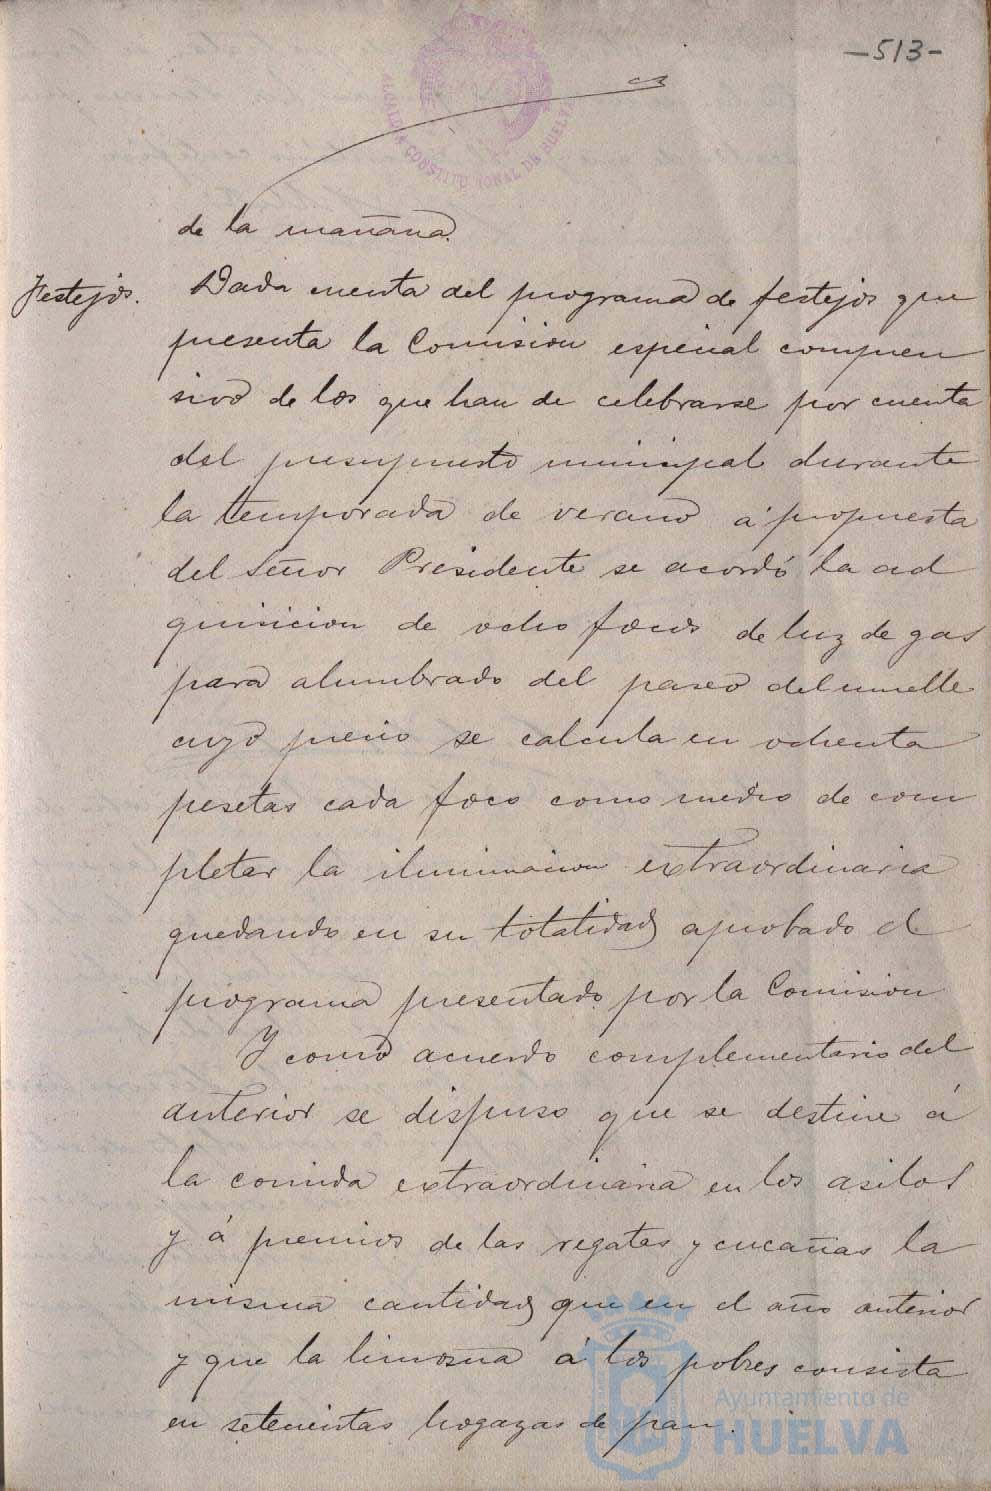 -513-
ALCALDIA CONSTITUCIONAL DE HUELVA
de la mañana.
Festejos.
Dada cuenta del programa de festejos que
presenta la Comision especial compren
sivo de los que han de celebrarse por cuenta
del presupuesto municipal durante
la temporada de verano á propuesta
del Señor Presidente se acordó la ad
quisicion de ocho focos de luz de gas
para alumbrado del paseo del muelle
cuyo precio se calcula en ochenta
pesetas cada foco como medio de com
pletar la iluminacion extraordinaria
quedando en su totalidad aprobado el
programa presentado por la Comision
Y como acuerdo complementario del
anterior se dispuso que se destine á
la comida extraordinaria en los asilos
y á premios de las regatas y cucañas la
misma cantidad que en el año anterior
y que la limosna á los pobres consista
en setecientas hogazas de pan.
Ayuntamiento de
HUELVA